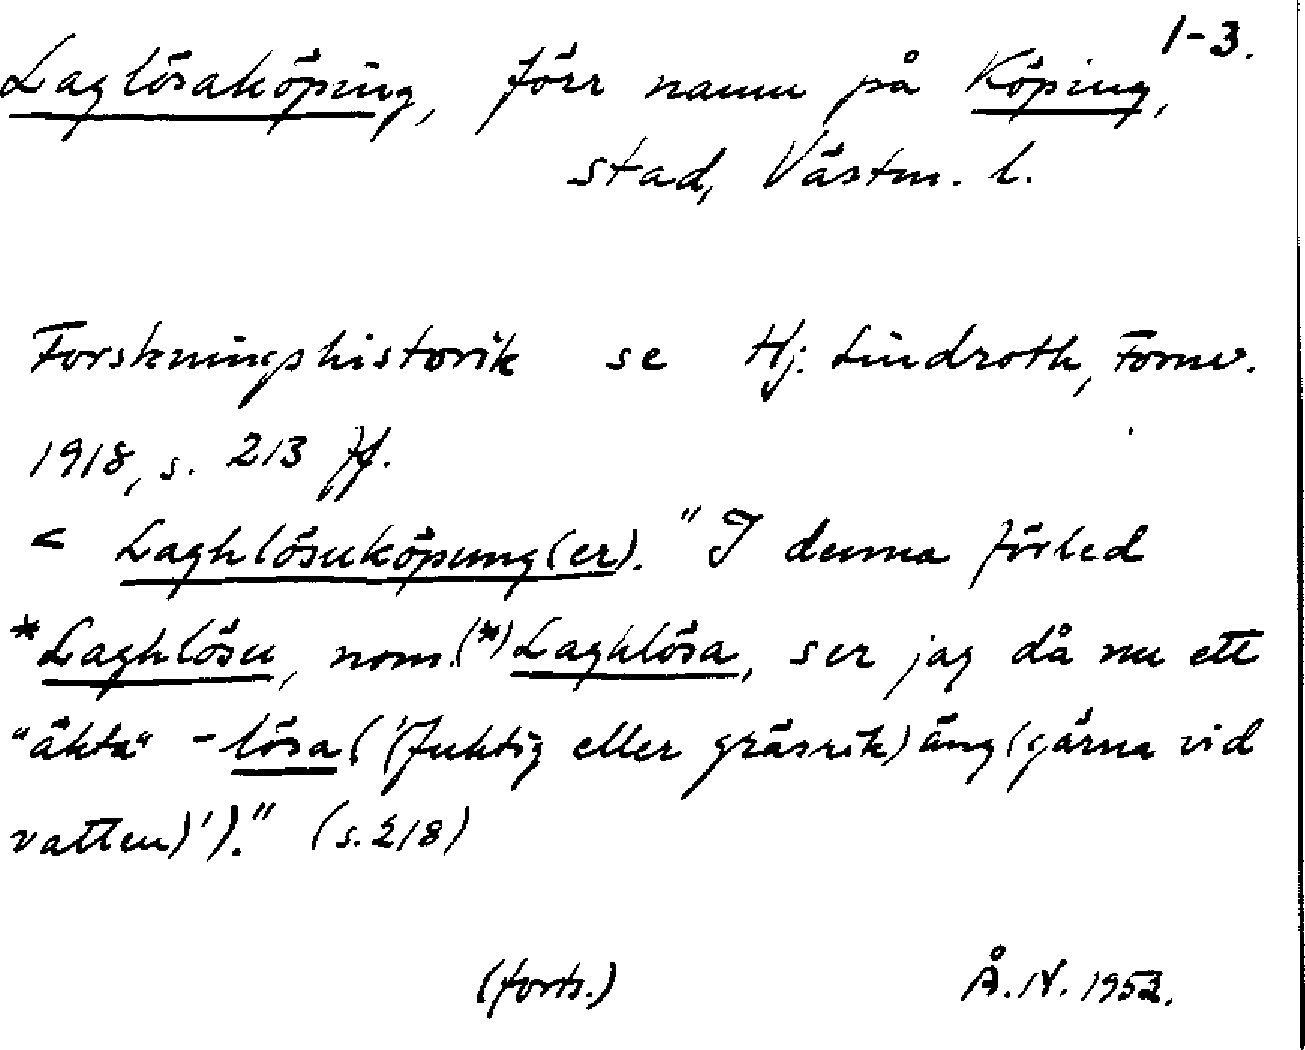 1-3.
Laglösaköping, förr namn på Köping,
stad, Västm. l.
Forskningshistorik se Hj. Lindroth, Fornv.
1918, s. 213 ff.
< Laghlösuköpung(er). "I denna förled
*Laghlösu, nom. (*)Laghlösa, ser jag då nu ett
"äkta" -lösa ('(fuktig eller gräsrik) äng (gärna vid
vatten)')." (s. 218)
(forts.) Å. N. 1952.